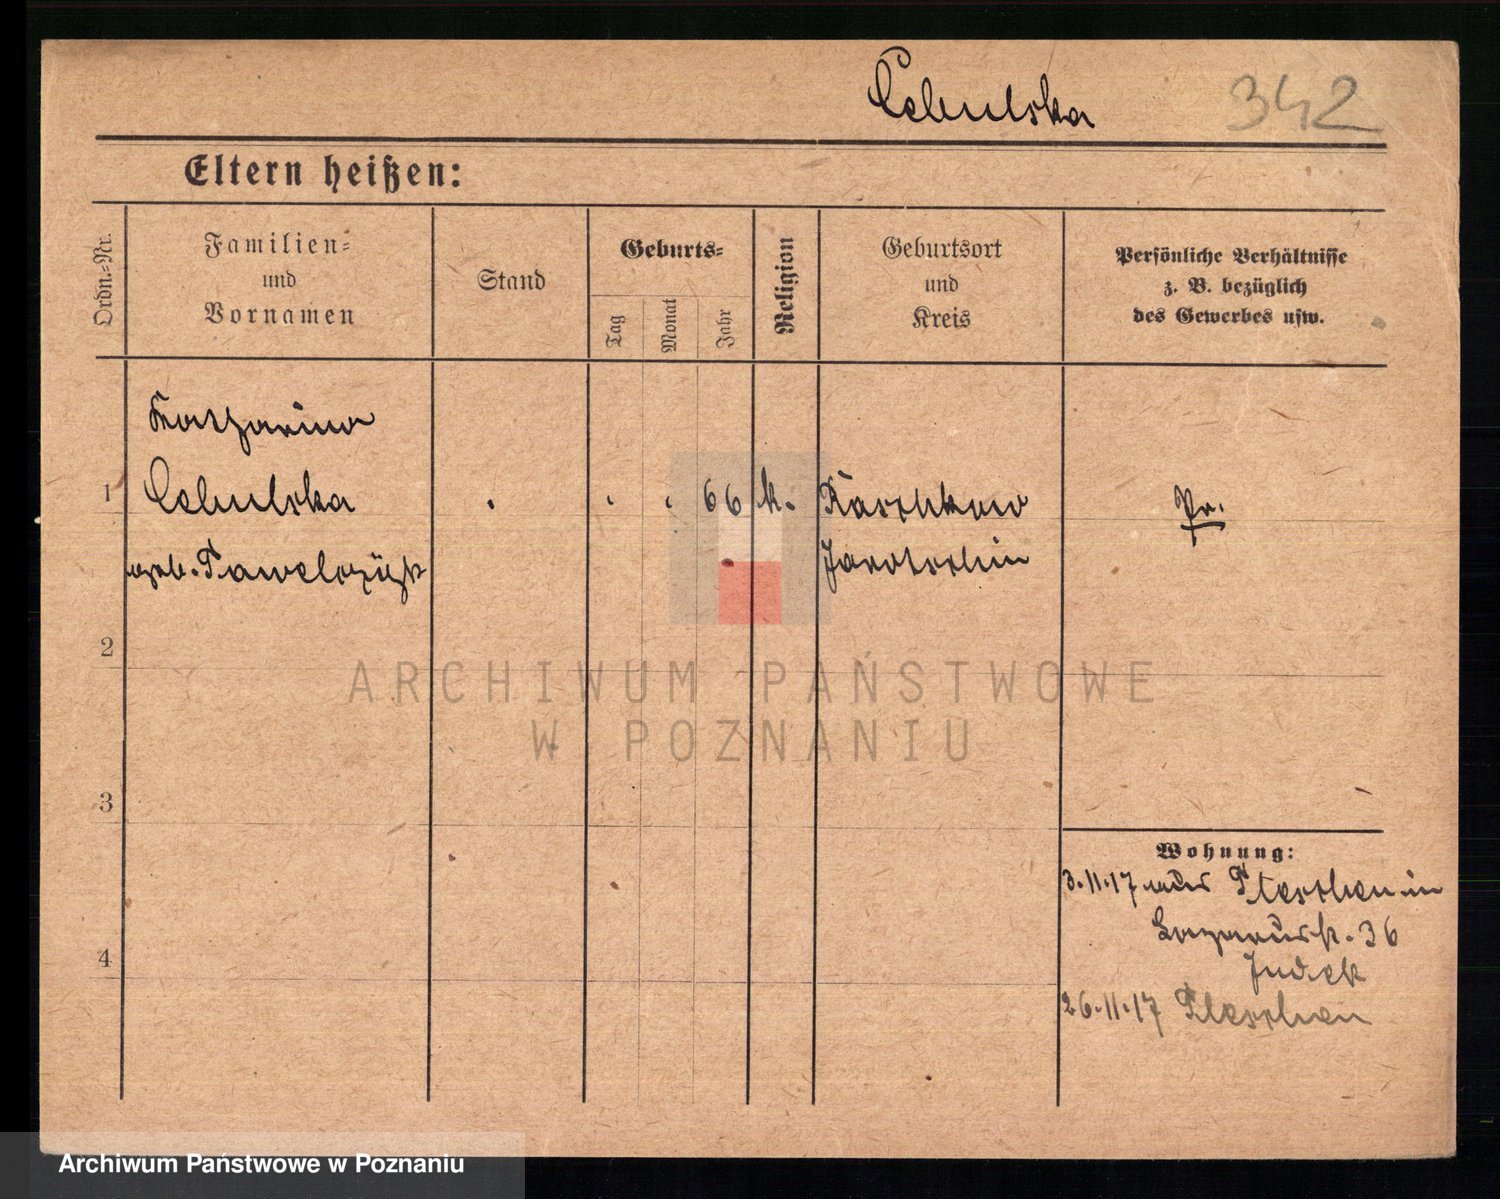 Cebulska 342
Eltern heißen:
Ordn.-Nr.
Familien-
und
Vornamen
Stand
Geburts-
Tag
Monat
Jahr
Religion
Geburtsort
und
Kreis
Persönliche Verhältnisse
z. B. bezüglich
des Gewerbes usw.
Katharina
1 Cebulska . . . 66 k. Raschkow Pr.
geb. Jarotschin
2
3
4
Wohnung:
3.11.17 aus Pleschen in
Lazarusstr. 36
Judek
26.11.17 Pleschen
ARCHIWUM PAŃSTWOWE
W POZNANIU
Archiwum Państwowe w Poznaniu